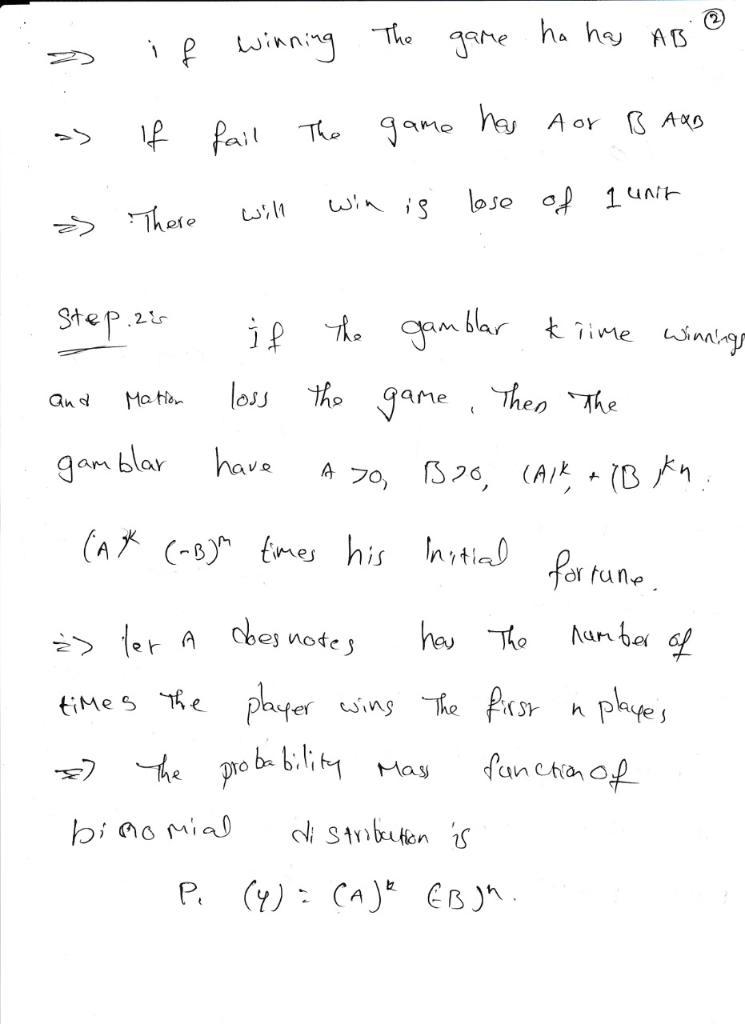 ②
=> if winning The game ha has AB
=> If fail The game has A or B A&B
=> There will win is lose of 1 unit
Step.2:-
if The gamblar k time winnings
and loss the game, Then The
gamblar have A >0, B>0, (A)^k, + (B)^kn.
(A)^k (-B)^n times his Initial fortune.
=> let A doesnotes has The number of
times The player wins The first n playes
=> The probability Mass function of
binomial distribution is
P. (y) = (A)^k (-B)^n.